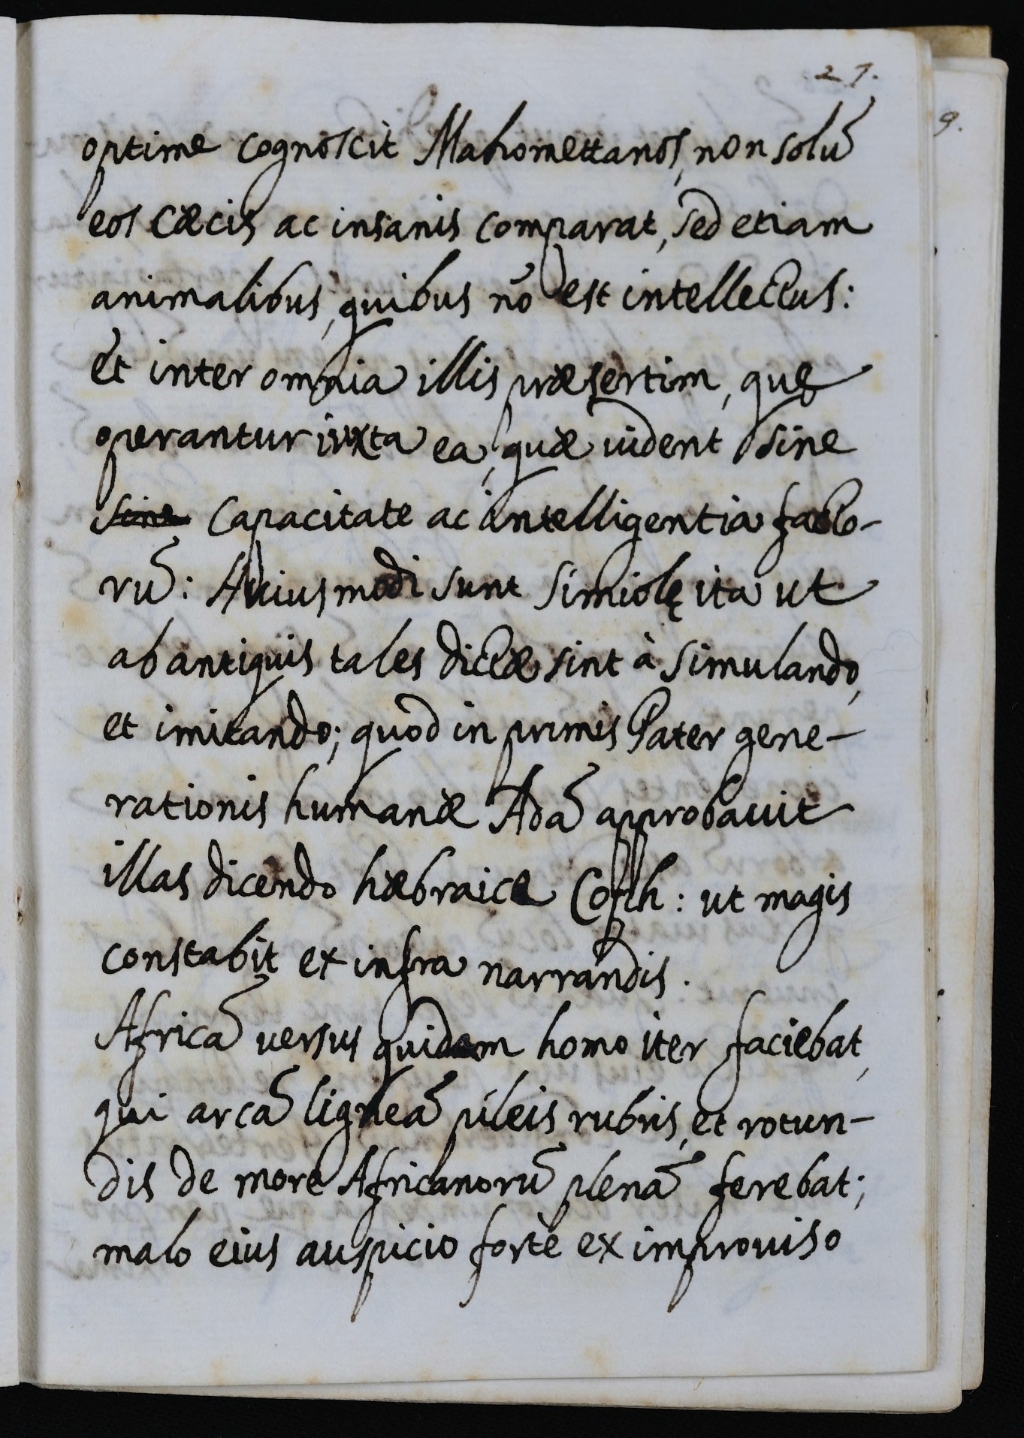 27.
optime cognoscit Mahomettanos, non solũ
eos cæcis ac insanis comparat, sed etiam
animalibus, quibus nõ est intellectus:
et inter omnia illis præsertim, quę
operantur iuxta ea, quæ uident sine
sine capacitate ac intelligentia facto-
rũ: Huiusmodi sunt simiolę ita ut
ab antiquis tales dictæ sint à simulando,
et imitando; quod in primis Pater gene-
rationis humanæ Adã approbauit
illas dicendo hæbraice Coph: ut magis
constabit ex infra narrandis.
Africã versus quidam homo iter faciebat,
qui arcã ligneã pileis rubris, et rotun-
dis de more Africanorũ plenã ferebat;
malo eius auspicio fortè ex improuiso
9.